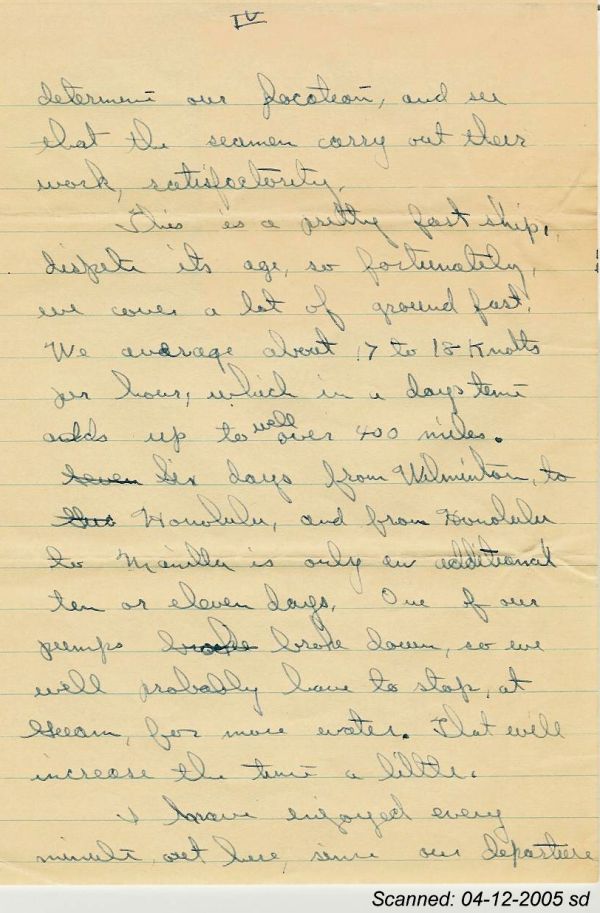 IV
determine our location, and see
that the seamen carry out their
work, satisfactority.
This is a pretty fast ship,
dispete its age, so fortunately,
we cover a lot of ground fast.
We avarage about 17 to 18 Knotts
per hour, which in a days time
adds up to well over 400 miles.
Seven Six days from Wilminton, to
Honolulu, and from Honolulu
to Manilla is only an additional
ten or eleven days. One of our
pumps broke down, so we
will probably have to stop, at
Gueam, for more water. That will
increase the time a little.
I have enjoyed every
minute, out here, since our departure
Scanned: 04-12-2005 sd